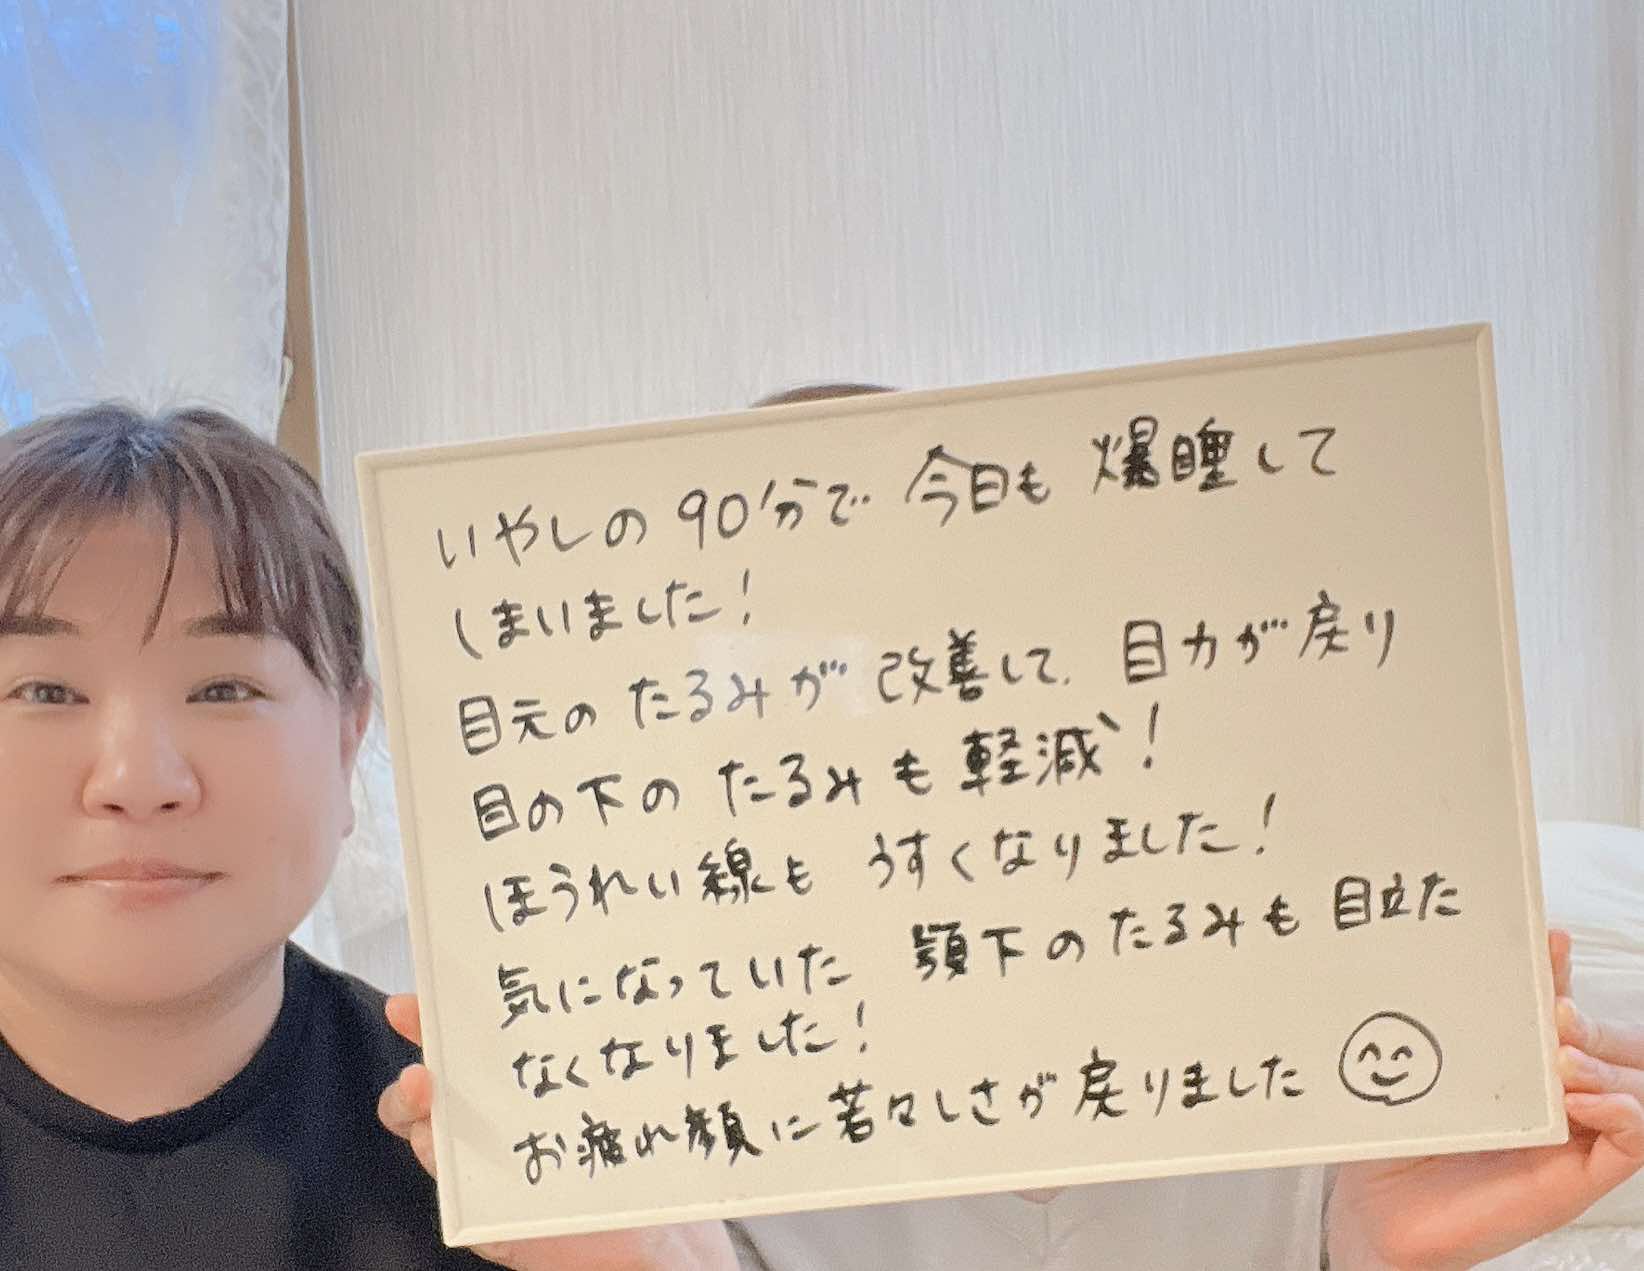 いやしの90分で今日も爆睡して
しまいました!
目元のたるみが改善して、目力が戻り
目の下のたるみも軽減!
ほうれい線もうすくなりました!
気になっていた顎下のたるみも目立た
なくなりました!
お疲れ顔に若々しさが戻りました